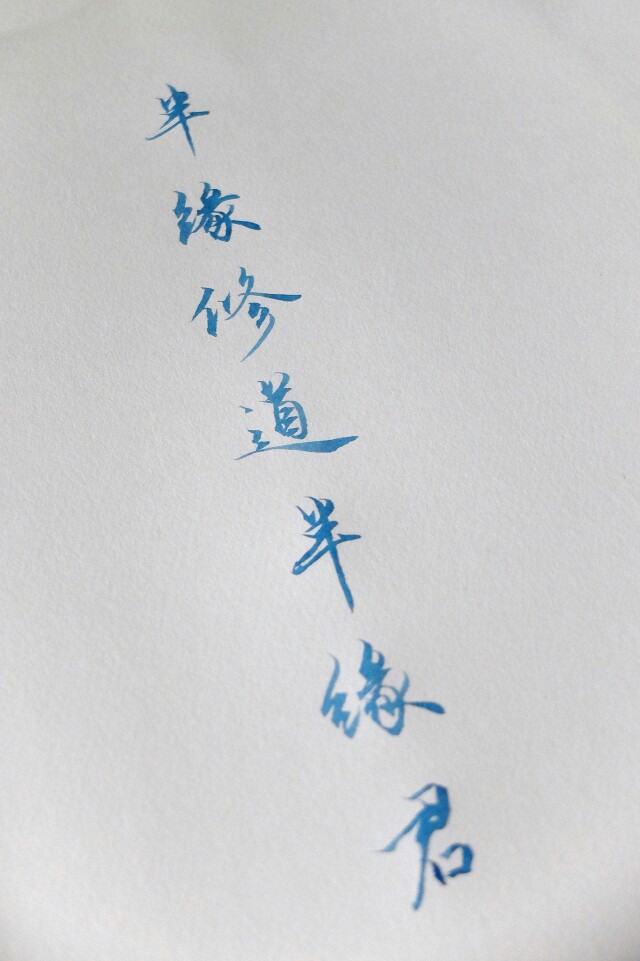 半缘修道半缘君